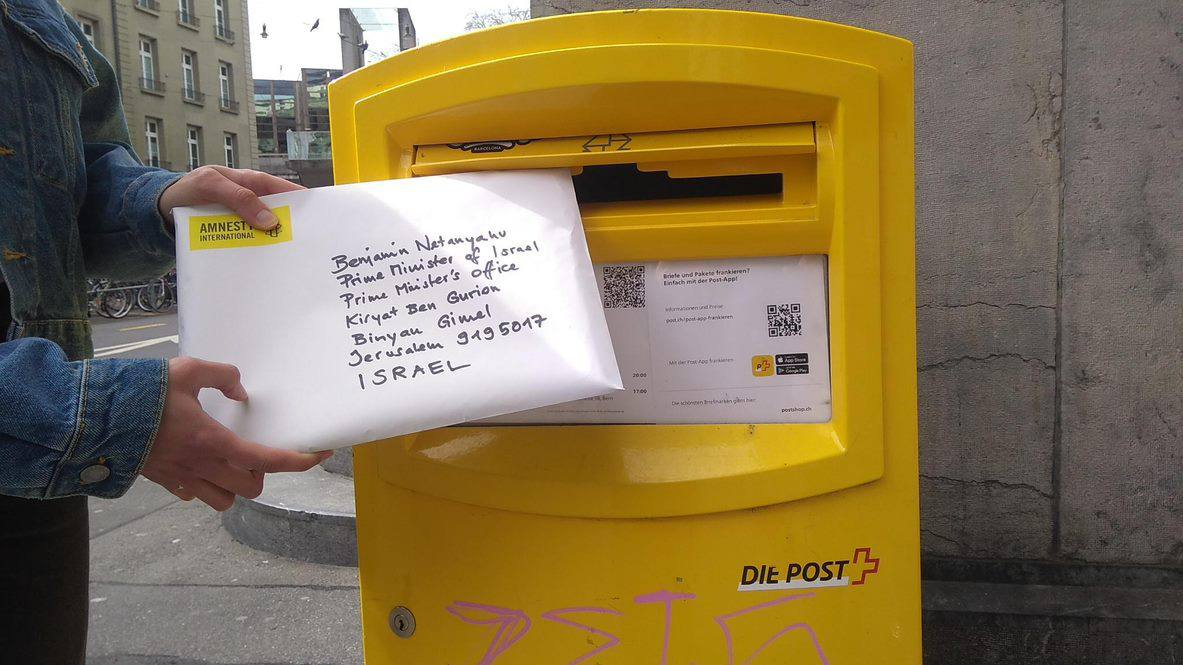 AMNESTY
INTERNATIONAL
Benjamin Netanyahu
Prime Minister of Israel
Prime Minister's Office
Kiryat Ben Gurion
Binyan Gimel
Jerusalem 9195017
ISRAEL
BARCELONA
Briefe und Pakete frankieren?
Einfach mit der Post-App!
Informationen und Preise
post.ch/post-app-frankieren
Mit der Post-App frankieren
App Store
Google Play
20:00
17:00
Bern
Die schönsten Briefmarken gibts hier:
postshop.ch
DIE POST